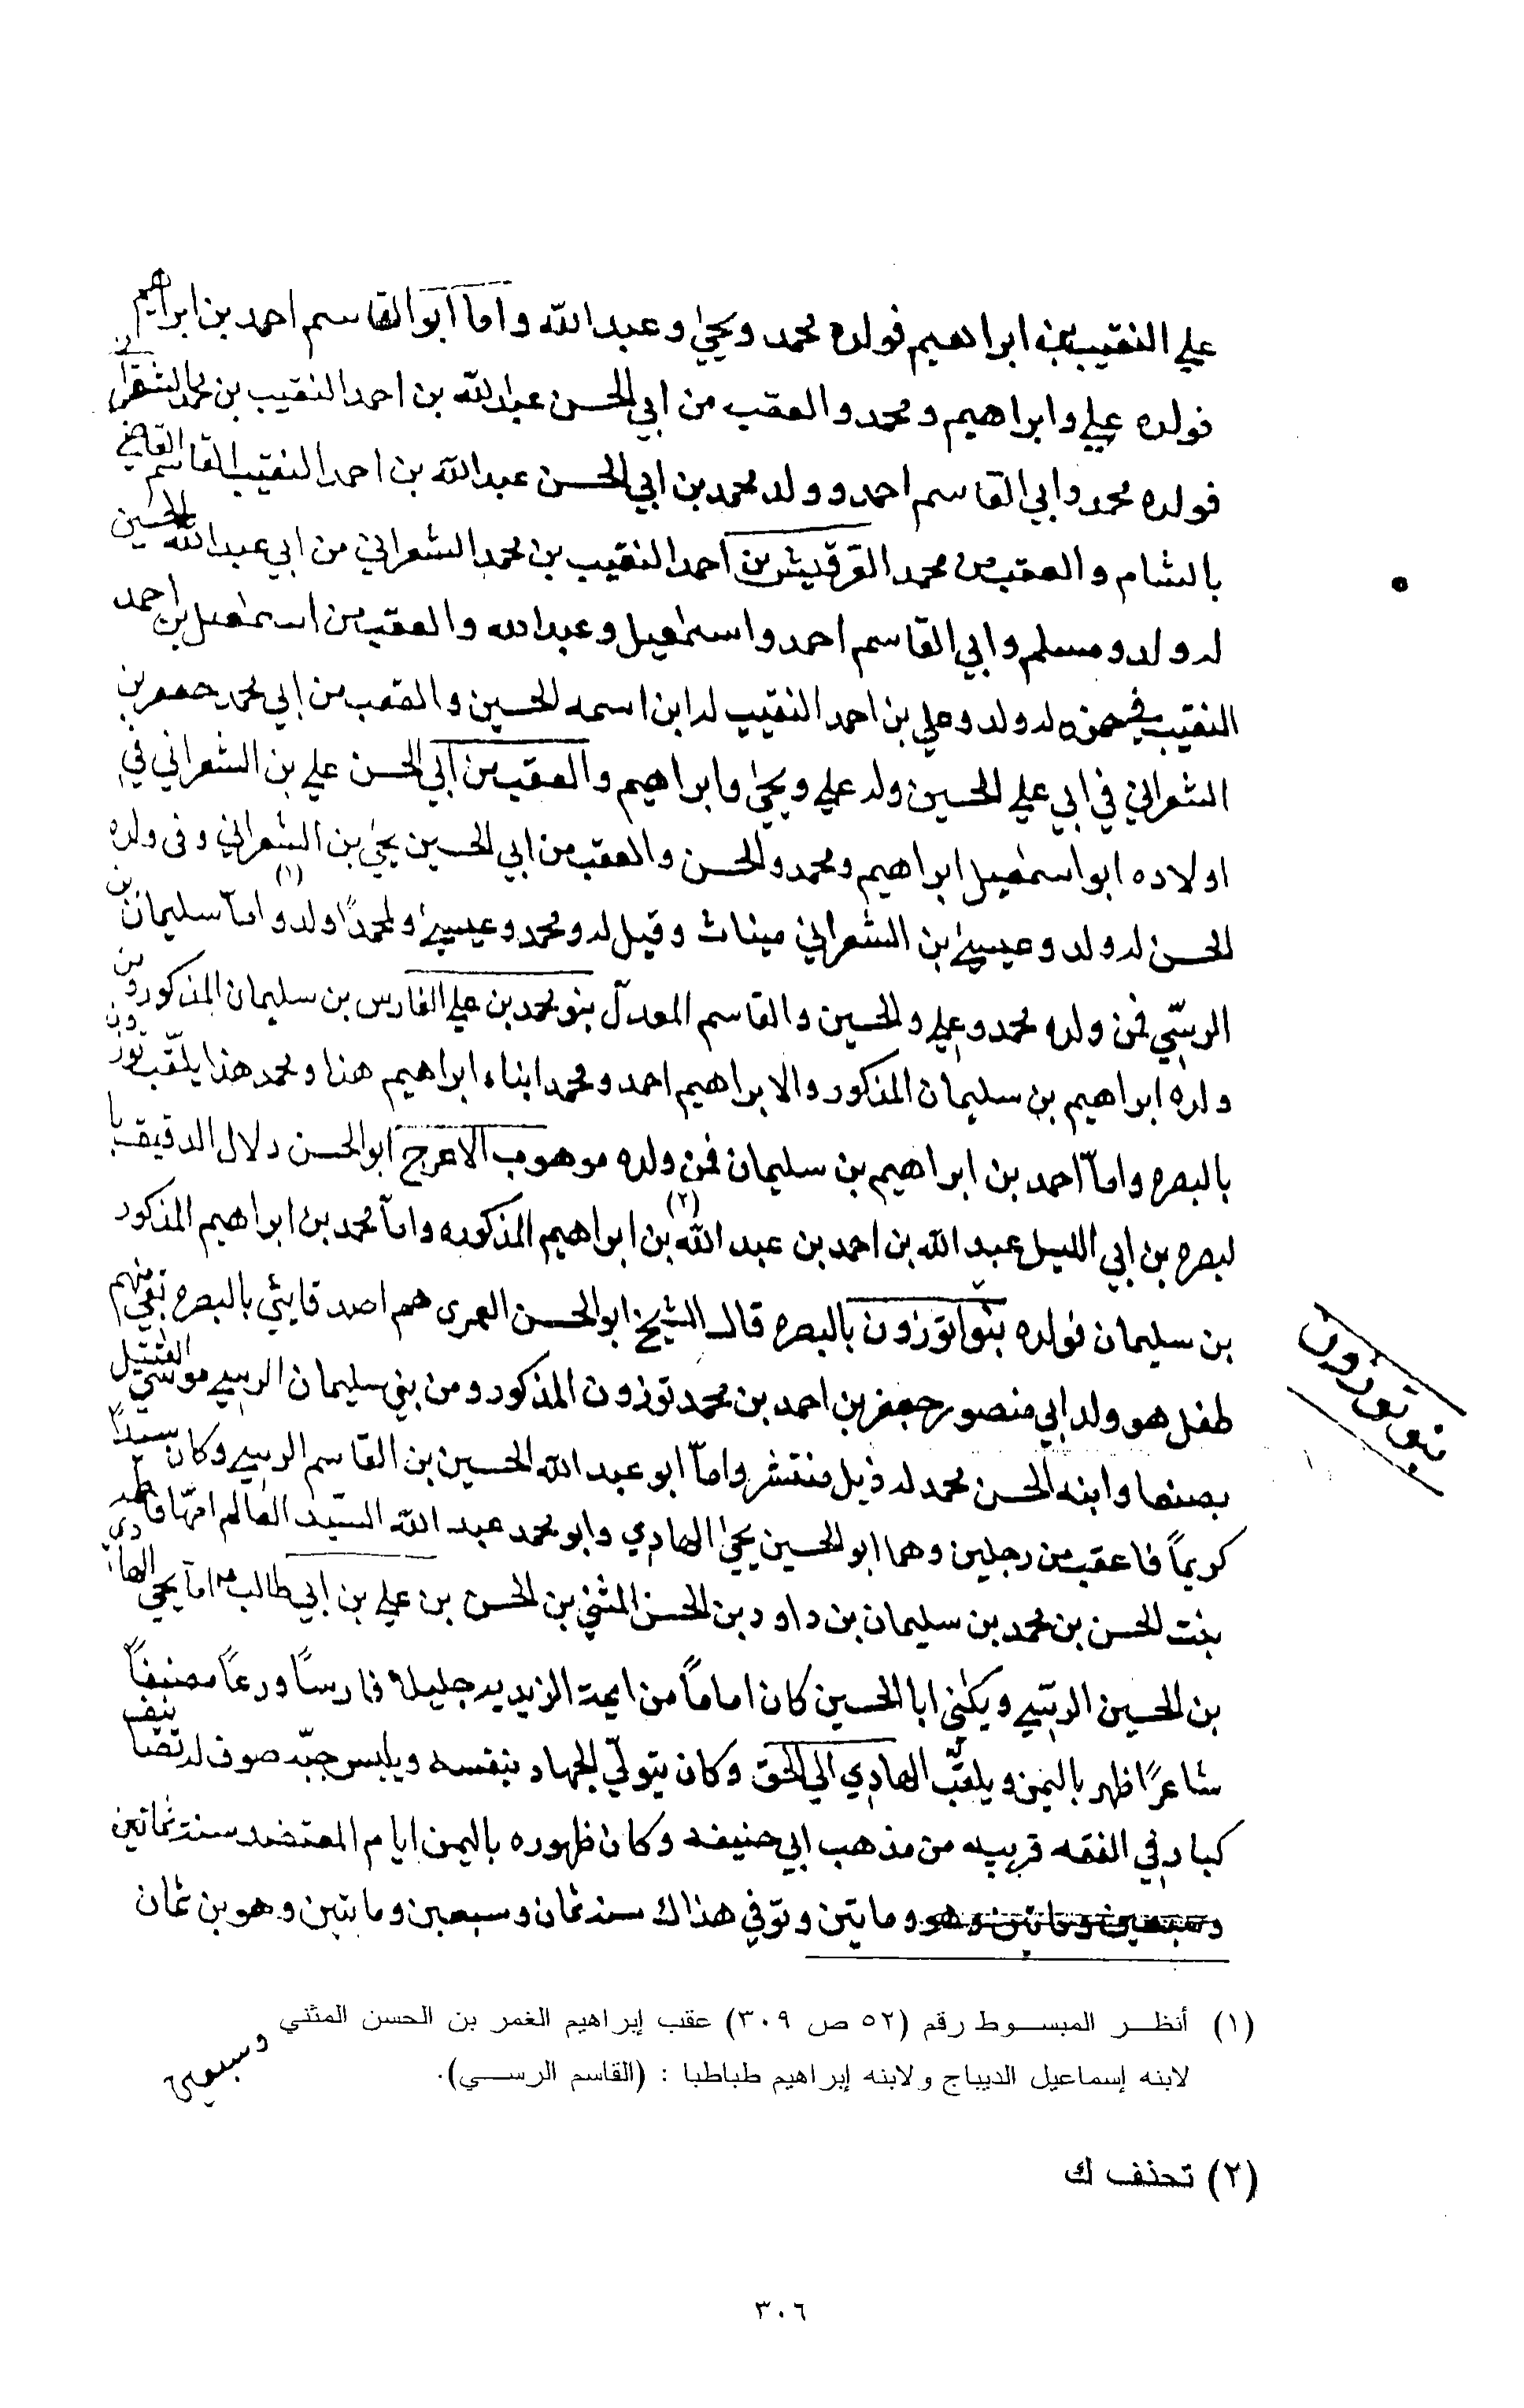 علي النقيب بن ابراهيم فولده محمد ويحيى وعبدالله واما ابو القاسم احمد بن ابراهيم
فولده علي وابراهيم ومحمد والعقب من ابي الحسن عبدالله بن احمد النقيب بن محمد الشعراني
فولده محمد وابي القاسم احمد وولد محمد بن ابي الحسن عبدالله بن احمد النقيب القاسم القاضي
بالشام والعقب من محمد القرقيش بن احمد النقيب بن محمد الشعراني من ابي عبدالله الحسين
له ولد ومسلم وابي القاسم احمد واسمعيل وعبدالله والعقب من اسمعيل بن احمد
النقيب في حمزه له ولد وعلي بن احمد النقيب له ابن اسمه الحسين والعقب من ابي محمد جعفر بن
الشعراني في ابي علي الحسين ولد علي ويحيى وابراهيم والعقب من ابي الحسن علي بن الشعراني في
اولاده ابو اسمعيل ابراهيم ومحمد والحسن والعقب من ابي الحسين يحيى بن الشعراني وفى ولده
الحسن له ولد وعيسى بن الشعراني ميناث وقيل له ومحمد وعيسى ولمحمد اولد (١) واماّ سليمان بن
الرسّي فمن ولده محمد وعلي والحسين والقاسم المعدل بنو محمد بن علي الفارس بن سليمان المذكور ومن
ولده ابراهيم بن سليمان المذكور والا براهيم احمد ومحمد ابناء ابراهيم هذا ومحمد هذا يلقّب توزون
بالبصره واماّ احمد بن ابراهيم بن سليمان فمن ولده موهوب الاعرج ابو الحسن دلال الدقيق با
لبصره بن ابي الليل عبد الله بن احمد بن عبد الله بن (٢) ابراهيم المذكوره واماّ محمد بن ابراهيم المذكور
بن سليمان فولده بنوا توزون بالبصره قال الشيخ ابو الحسن العمرى هم اصدقايئي بالبصره بقي منهم
طفل هو ولد ابي منصور جعفر بن احمد بن محمد توزون المذكور ومن بني سليمان الرسي موسى القتيل
بصنعا وابنه الحسن محمد له ذيل منتشر واماّ ابو عبد الله الحسين بن القاسم الرسي وكان سيداً
كريماً فاعقب من رجلين وهما ابو الحسين يحيى الهادي وابو محمد عبد الله السيد العالم امّها فاطمه
بنت الحسن بن محمد بن سليمان بن داود بن الحسن المثنى بن الحسن بن علي بن ابي طالب اماّ يحيى الهادي
بن الحسين الرسّي ويكنى ابا الحسين كان اماماً من ايمة الزيديه جليلا فارساً ورعاً مصنفاً
شاعرًا ظهر باليمن ويلقّب الهادي الي الحق وكان يتولّي الجهاد بنفسه ويلبس جبّه صوف له تصانيف
كبار في الفقه قريبه من مذهب ابي حنيفه وكان ظهوره باليمن ايام المعتضد سنة ثمانين
وسبعين ومايتين وهو ومايتين وتوّفي هذاك سنة ثمان وسبعين ومايتين وهو بن ثمان
وسبعين
بنو توزون
(١) أنظر المبسوط رقم (٥٢ ص ٣٠٩) عقب إبراهيم الغمر بن الحسن المثني
لابنه إسماعيل الديباج ولابنه إبراهيم طباطبا : (القاسم الرسي).
(٢) تحذف ك
٣٠٦